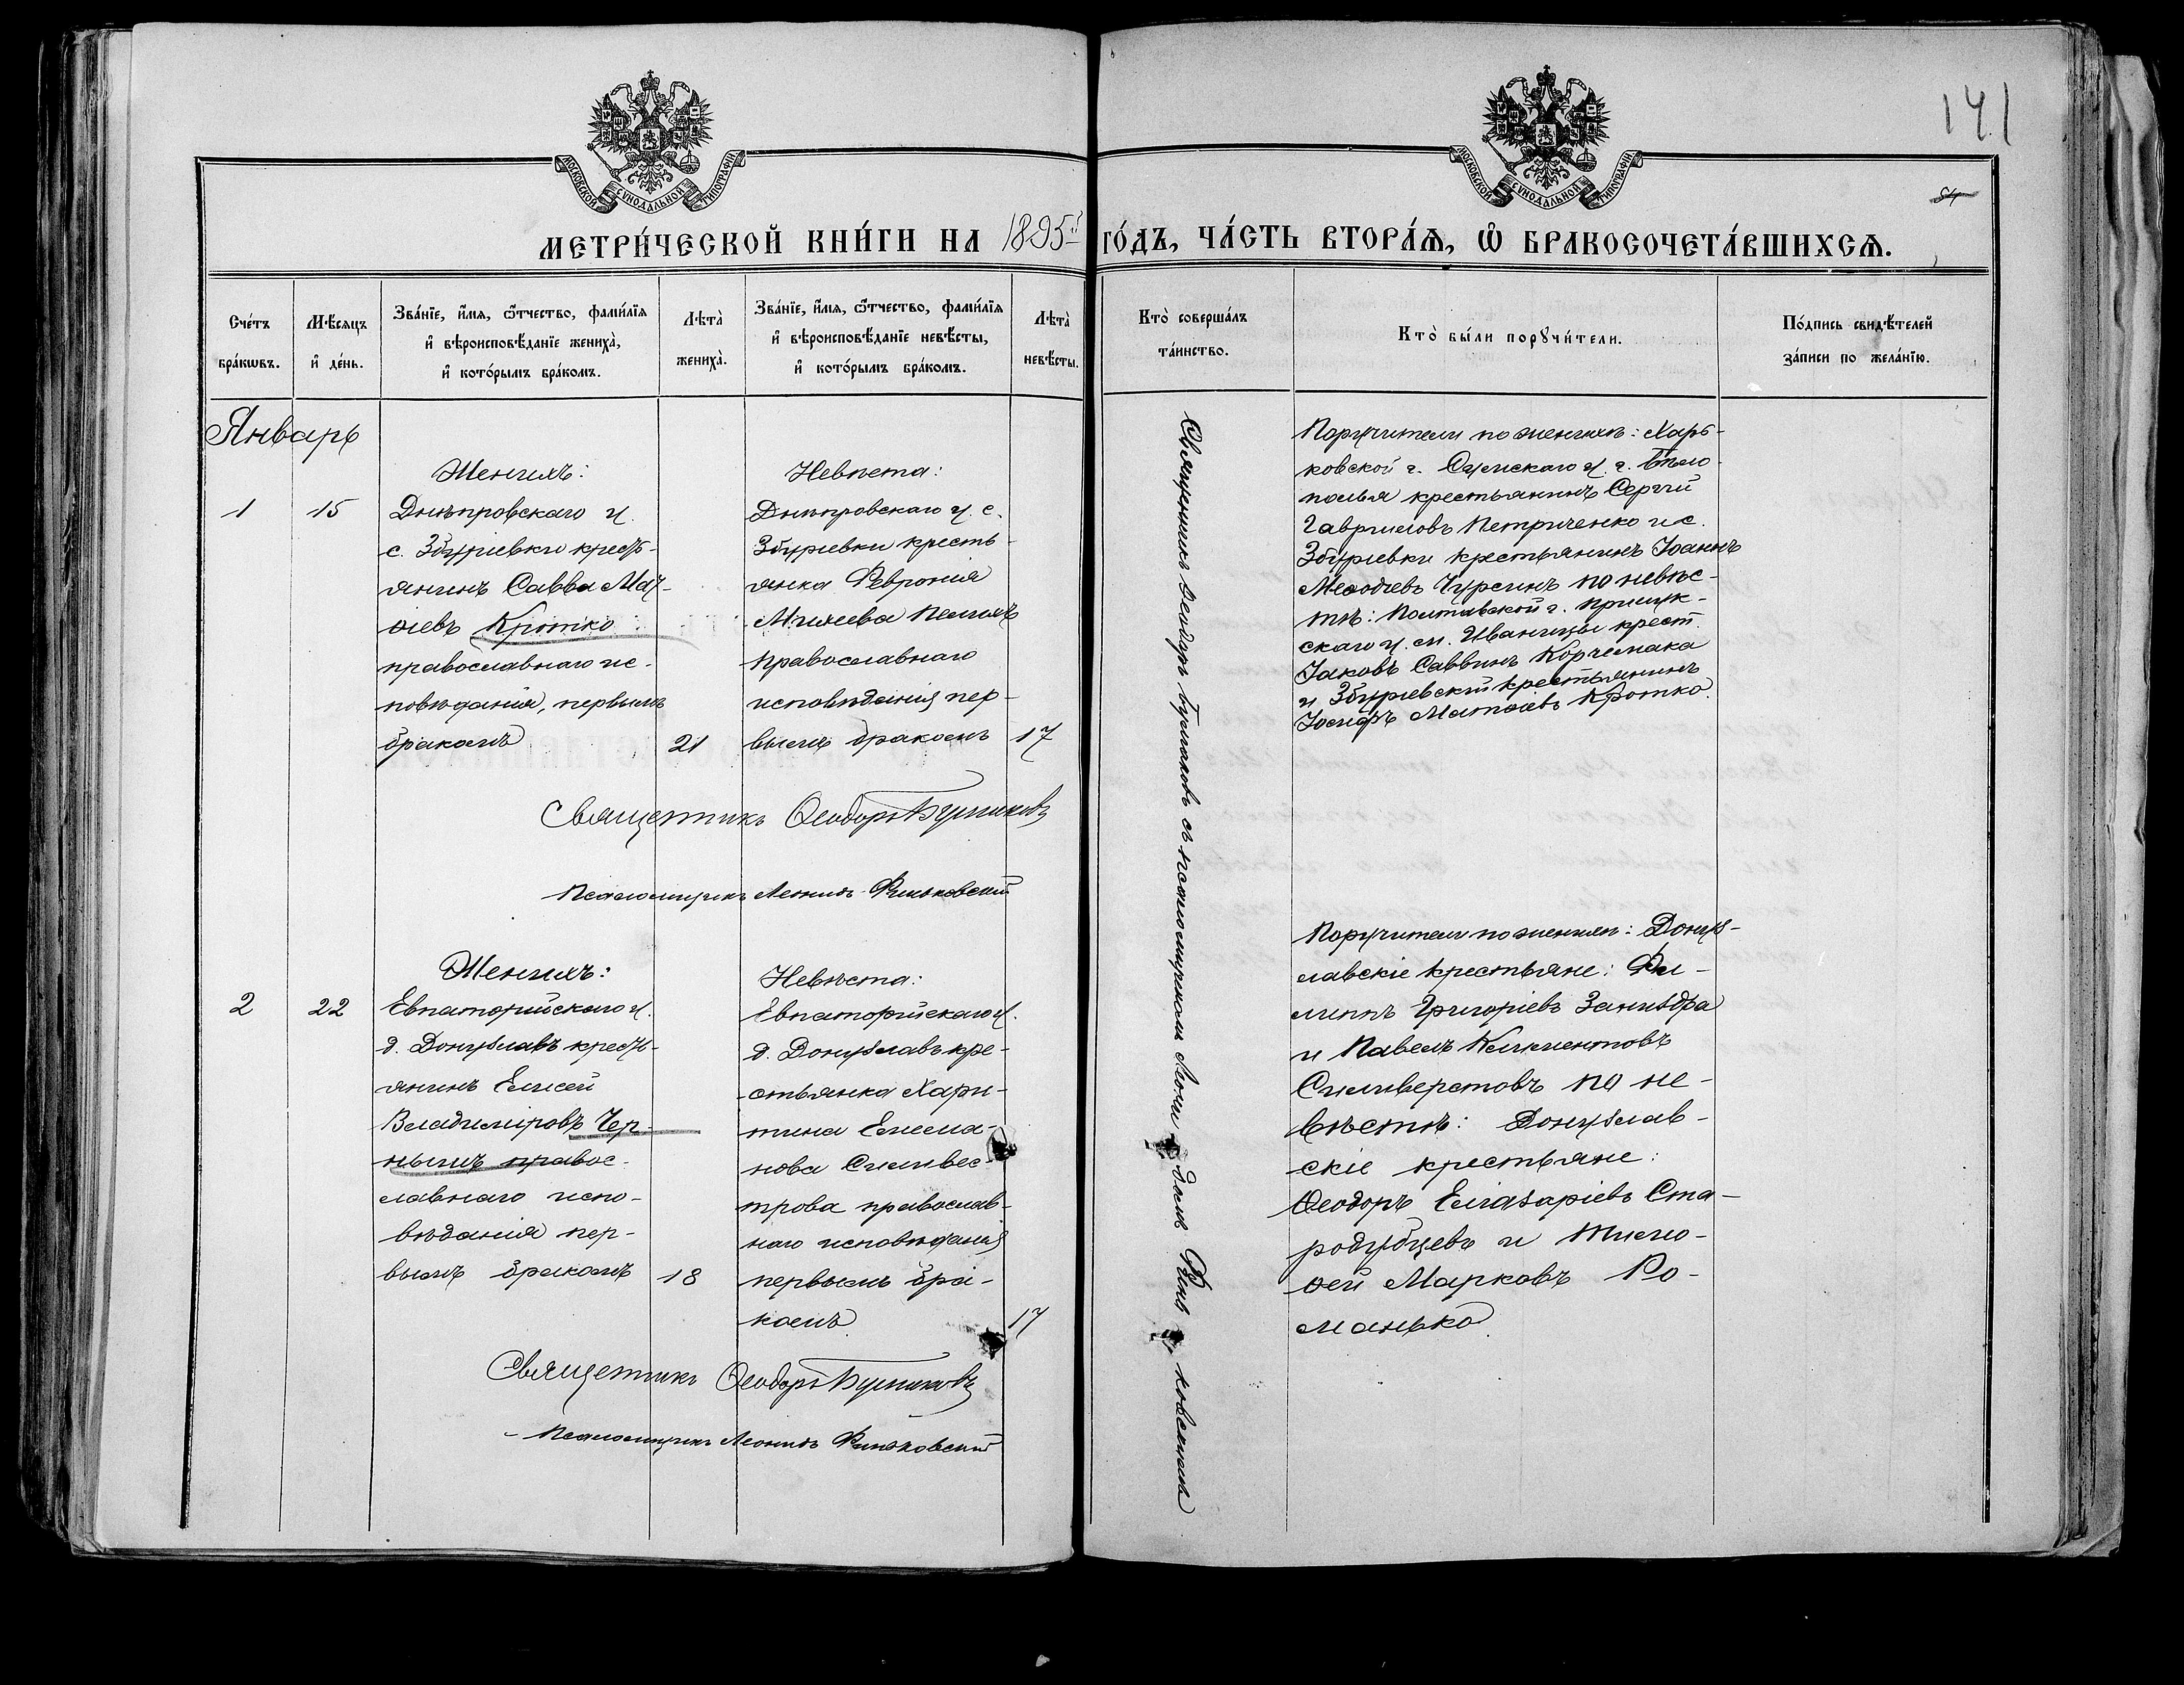 141
54
МОСКОВСКОЙ СѴНОДАЛЬНОЙ ТИПОГРАФІИ
МОСКОВСКОЙ СѴНОДАЛЬНОЙ ТИПОГРАФІИ
МЕТРИ́ЧЕСКОЙ КНИ́ГИ НА 1895й ГО́ДЪ, ЧА́СТЬ ВТОРА́Ѧ, Ѽ БРАКОСОЧЕТА́ВШИХСѦ.
Сче́тъ
бра́кѡвъ.
Мѣ́сяцъ
и҆ де́нь.
Зва́нїе, и҆́мѧ, ѻ҆́тчество, фамѝлїѧ
и҆ вѣроисповѣ́данїе жениха̀,
и҆ кото́рымъ бра́комъ.
Лѣта̀
жениха̀.
Зва́нїе, и҆́мѧ, ѻ҆́тчество, фамѝлїѧ
и҆ вѣроисповѣ́данїе невѣ́сты,
и҆ кото́рымъ бра́комъ.
Лѣта̀
невѣ́сты.
Кто̀ соверша́лъ
та́инство.
Кто̀ бы́ли порꙋчи́тели.
По́дпись свидѣ́телей
за́писи по жела́нїю.
Январь
Женихъ:
1
15
Днѣпровскаго у.
с. Збурьевки кресть-
янинъ Савва Мат-
ѳіевъ Кротко
православнаго ис-
повѣданія, первымъ
бракомъ
21
Невѣста:
Днѣпровскаго у. с.
Збурьевки кресть-
янка Феврония
Михеева Пелихъ
православнаго
исповѣданія пер-
вымъ бракомъ
17
Священникъ Ѳеодоръ Бутаковъ съ псаломщикомъ Леонидомъ Финьковскимъ
Поручители по женихѣ: Харь-
ковской г. Сумскаго у. г. Бѣло-
полья крестьянинъ Сергій
Гавриловъ Петриченко и с.
Збурьевки крестьянинъ Іоаннъ
Меѳодіевъ Чурсинъ по невѣс-
тѣ: Полтавской г. Прилук-
скаго у. м. Иваницы крест.
Іаковъ Саввинъ Корчмака
и Збурьевскій крестьянинъ
Іосифъ Матѳіевъ Кротко.
Священникъ Ѳеодоръ Бутаковъ
Псаломщикъ Леонидъ Финьковский
Женихъ:
2
22
Евпаторійскаго у.
д. Донузлавъ кресть-
янинъ Елисей
Владиміровъ Чер-
нышъ правос-
лавнаго испо-
вѣданія пер-
вымъ бракомъ
18
Невѣста:
Евпаторійскаго у.
д. Донузлавъ кре-
стьянка Хари-
тина Емелья-
нова Сильвес-
трова православ-
наго исповѣданія
первымъ бра-
комъ
17
Поручители по женихѣ: Донуз-
лавскіе крестьяне: Фи-
липпъ Григоріевъ Заниздра
и Павелъ Климентовъ
Сильверстовъ по не-
вѣстѣ: Донузлав-
скіе крестьяне:
Ѳеодоръ Елиазаріевъ Ста-
родубцевъ и Тимо-
ѳей Марковъ Ро-
манько
Священникъ Ѳеодоръ Бутаковъ
Псаломщикъ Леонидъ Финьковский